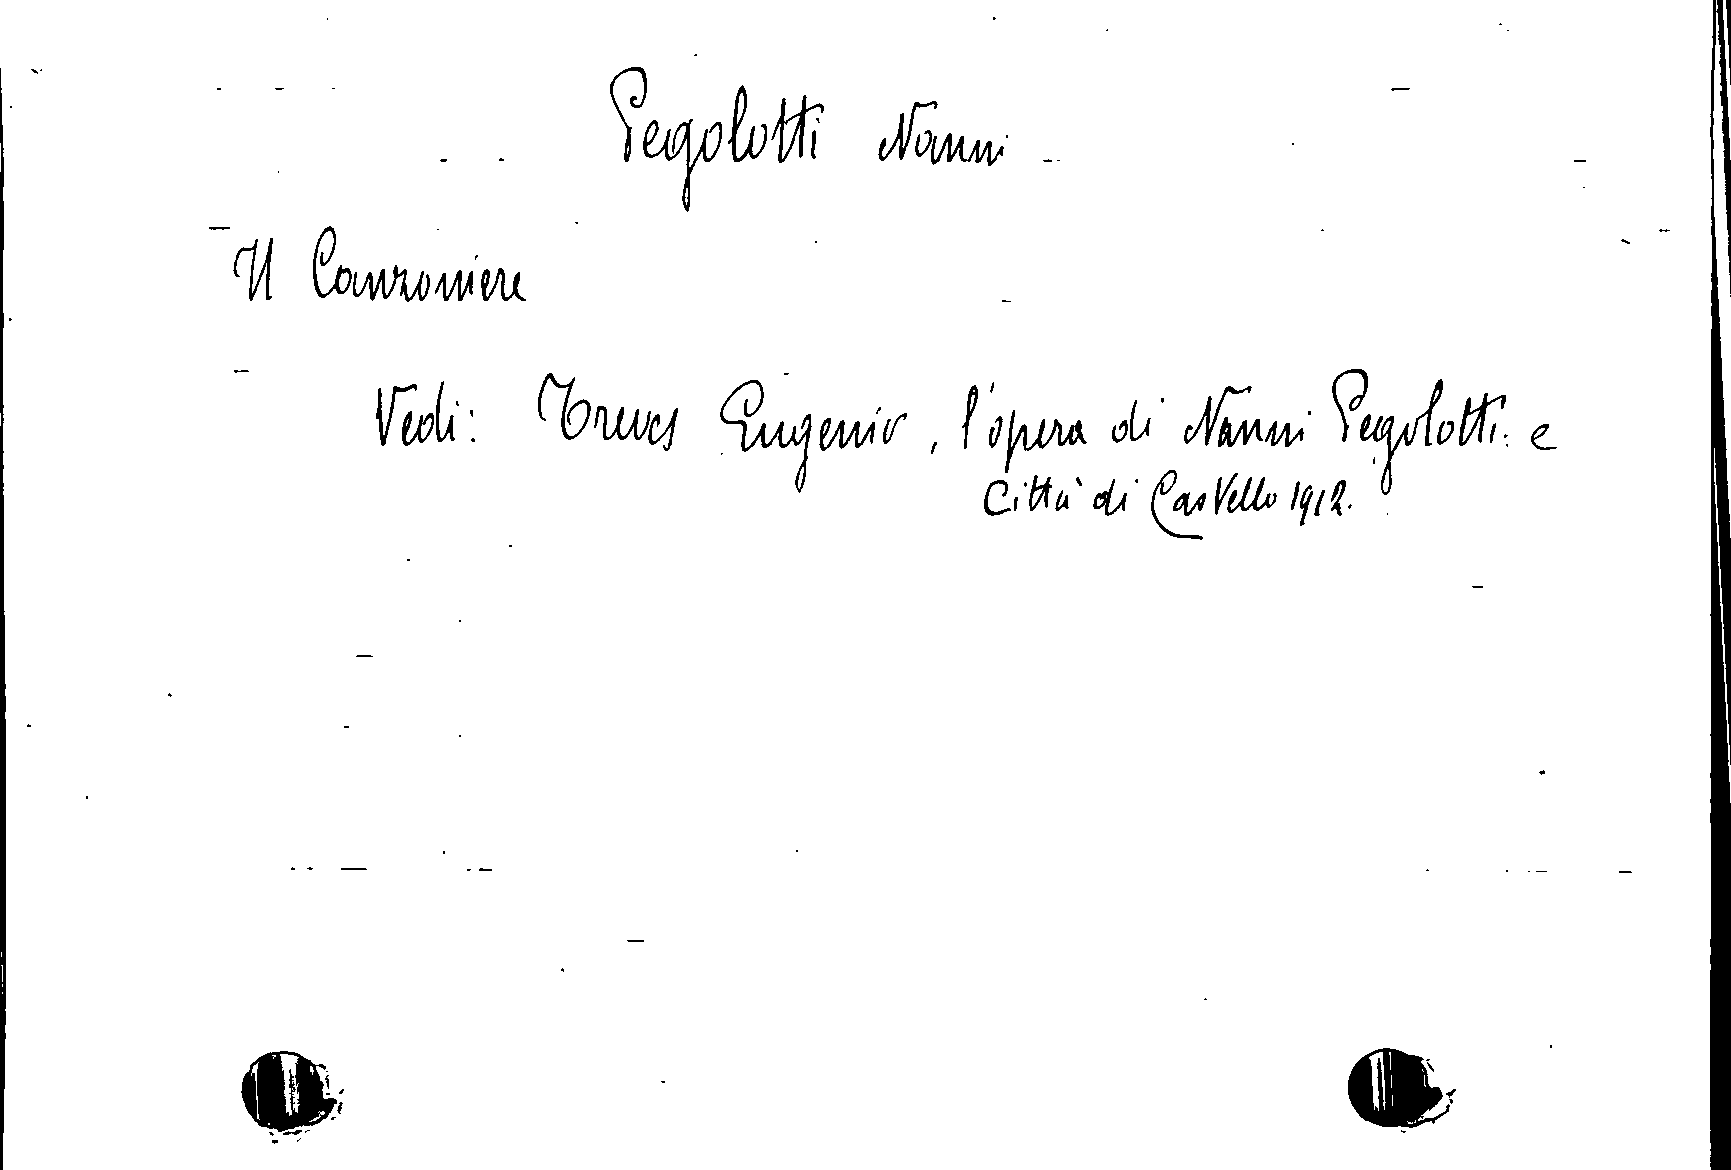 Pegolotti Nanni
Il Canzoniere
Vedi: Treves Eugenio, l'opera di Nanni Pegolotti. e
Città di Castello 1912.